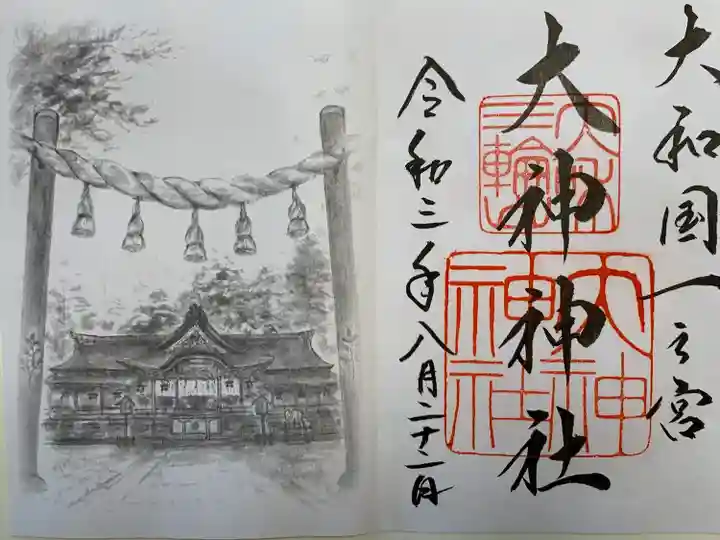 大和国一之宮
大神神社
令和三年八月二十二日
三輪
大神
神社